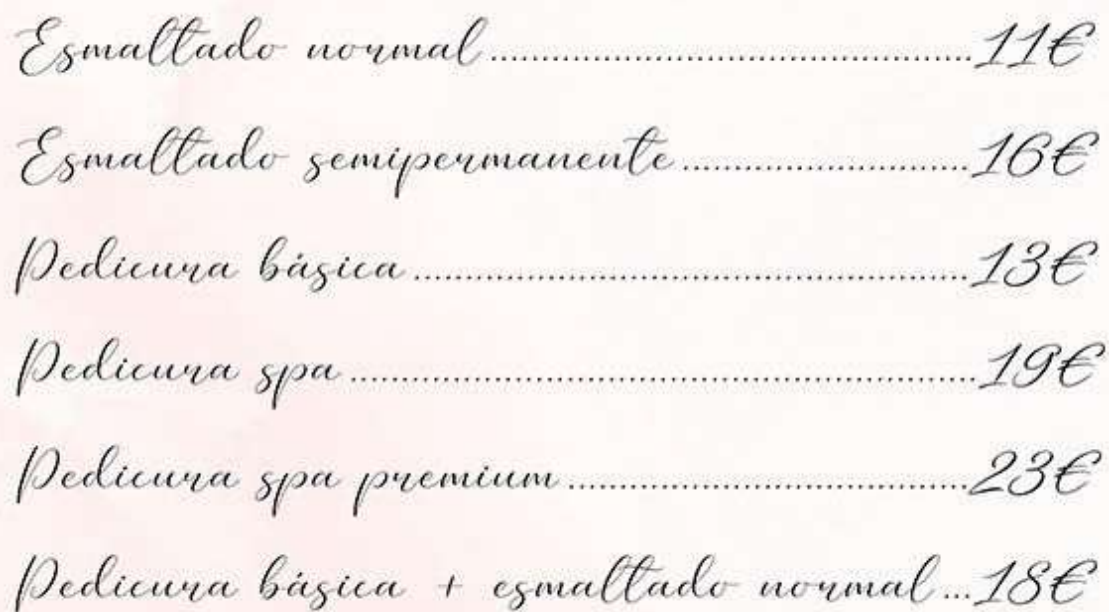 Esmaltado normal..............................................11€
Esmaltado semipermanente...........................16€
Pedicura básica.....................................................13€
Pedicura spa...........................................................19€
Pedicura spa premium......................................23€
Pedicura básica + esmaltado normal...18€